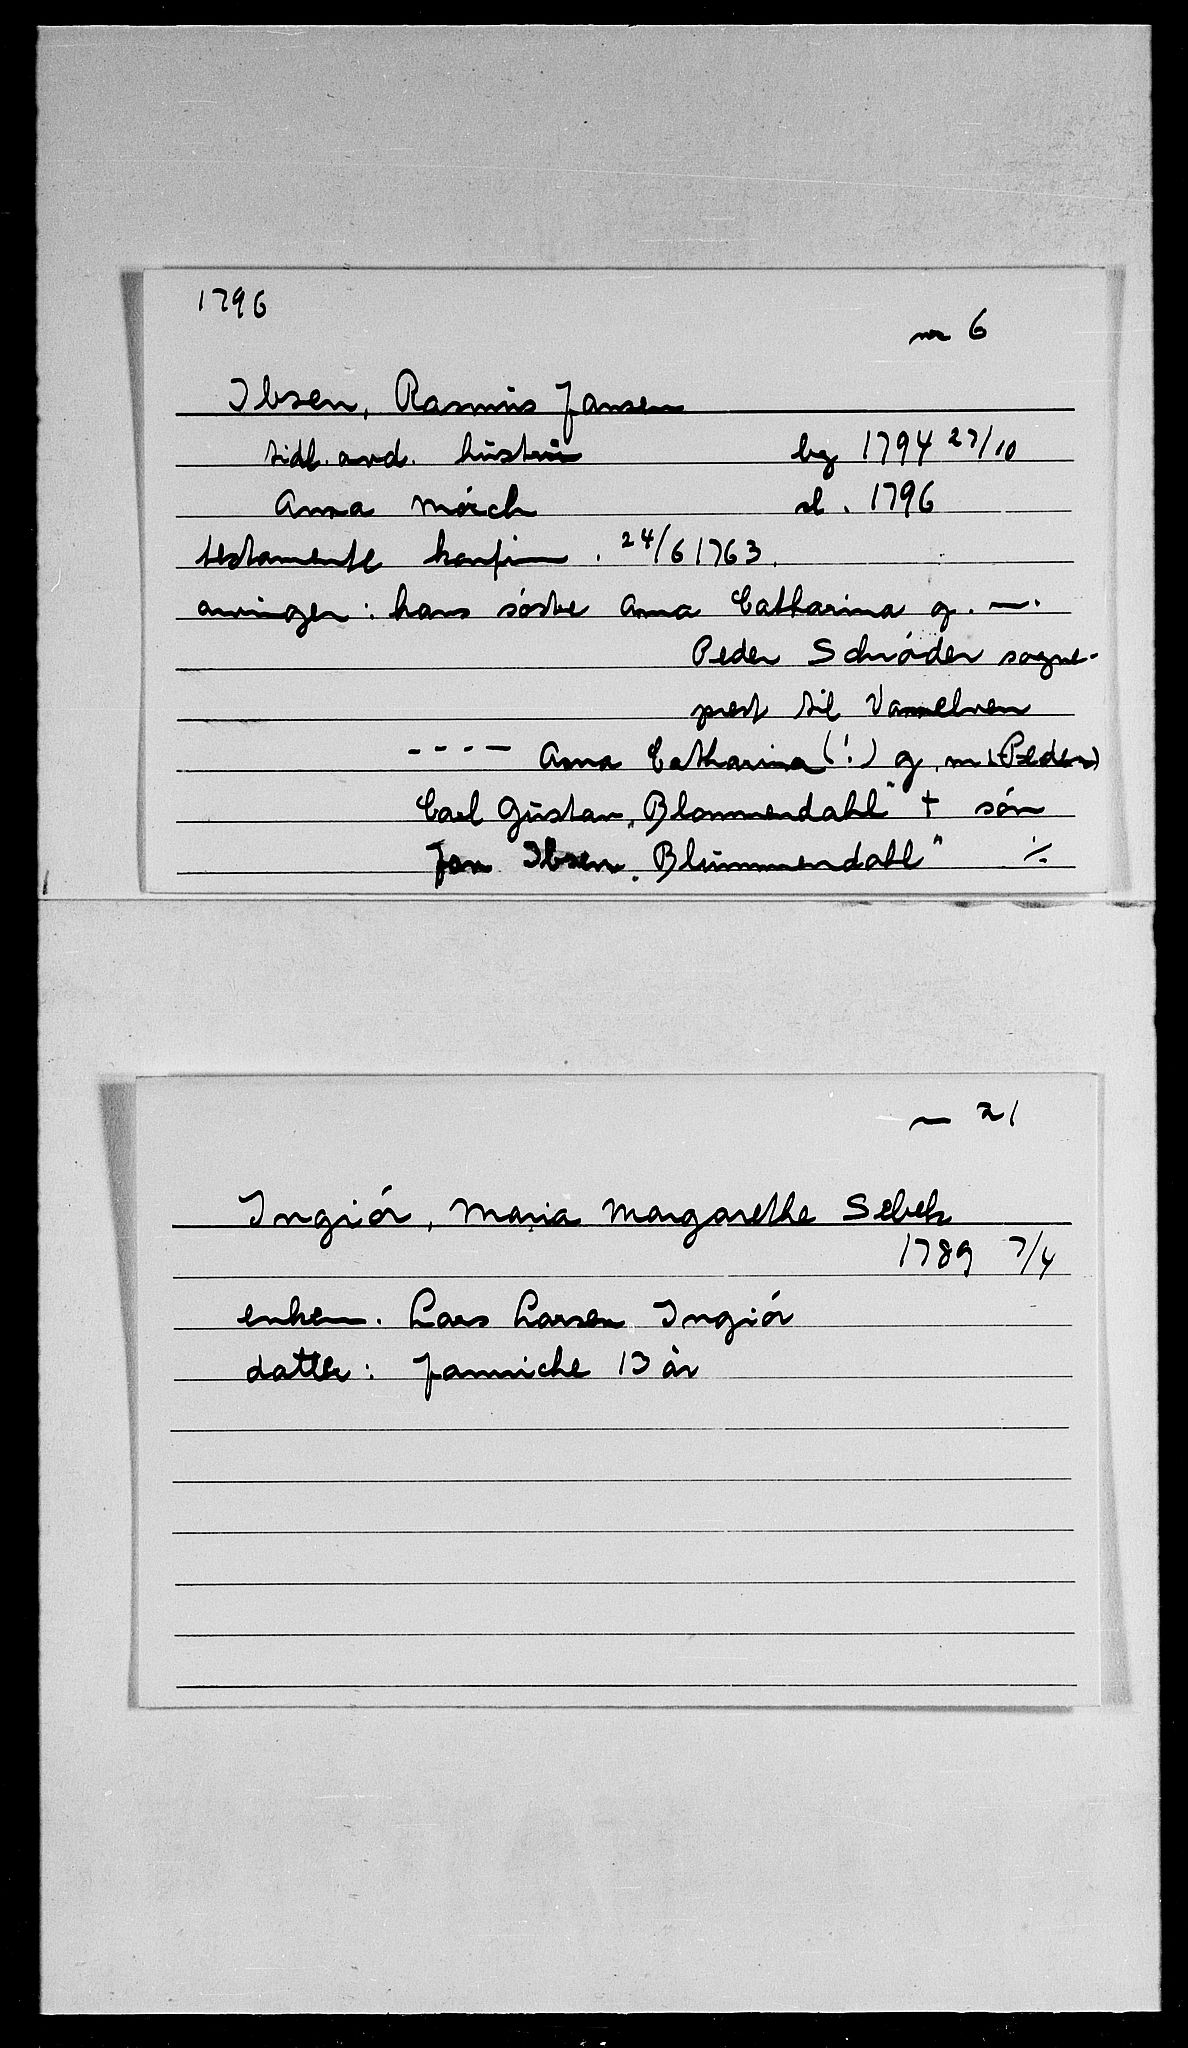 1796
nr 6
Ibsen, Rasmus Jansen
tidl. avd. hustru beg 1794 27/10
Anna Mörch sl. 1796
testamente konfirm. 24/6 1763.
arvinger: hans söster Anna Catharina g. m.
Peder Schröder sogne-
prest til Vanelven
---- Anna Catharina (!) g. m. (Peder)
Carl Gustav "Blommendahl" † sön
Jan Ibsen "Blümmendahl" ./.
nr 21
Ingiör, Maria Margarethe Sebek
1789 7/4
enkem. Lars Larsen Ingiör
datter: Janniche 13 år